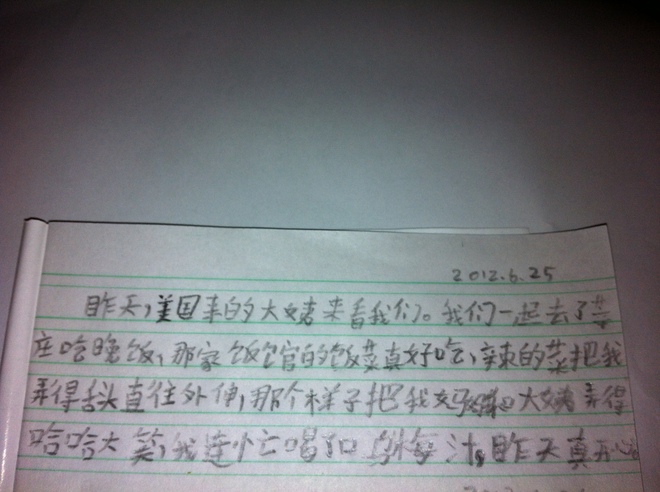 2012.6.25
昨天，美国来的大姨来看我们。我们一起去了
庄吃晚饭，那家饭馆的饭菜真好吃，辣的菜把我
弄得舌头直往外伸，那个样子把我妈和大姨弄得
哈哈大笑，我连忙喝了口酸梅汁。昨天真开心